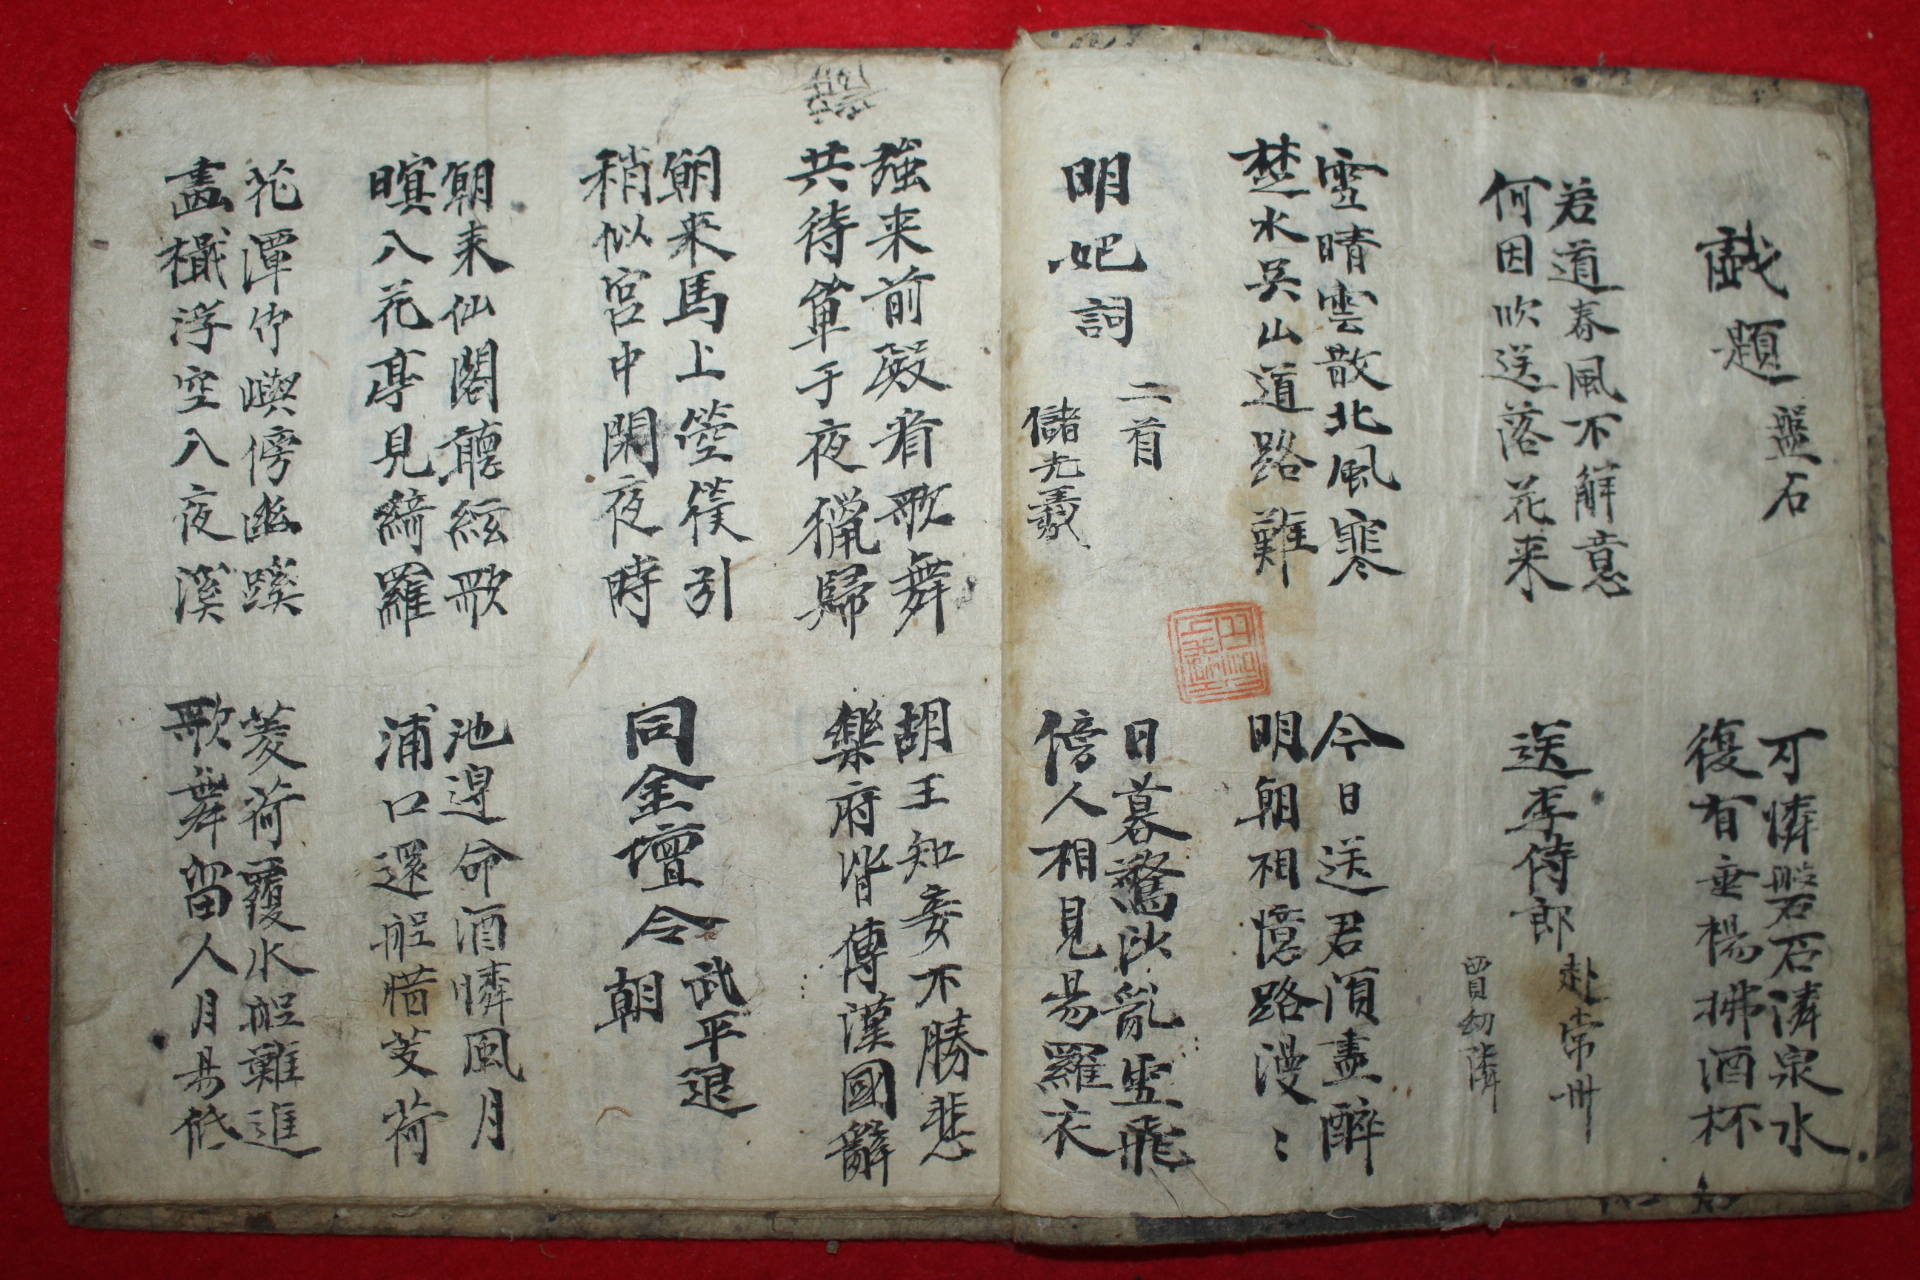 戱題 盤石
可憐磐石隣泉水
復有垂楊拂酒杯
若道春風不解意
何因吹送落花来
送李侍郎 赴常州
賈幼隣
雪晴雲散北風寒
楚水吳山道路難
今日送君須盡醉
明朝相憶路漫〻
明妃詞 二首
儲光羲
日暮驚沙亂雪飛
傍人相見易羅衣
強来前殿看歌舞
共待單于夜獵歸
胡王知妾不勝悲
樂府皆傳漢國辭
朝來馬上箜篌引
稍似宮中閑夜時
同金壇令 武平退
朝
朝来仙閣聽絃歌
暝入花亭見綺羅
池邊命酒憐風月
浦口還舡惜芰荷
花潭竹嶼傍幽蹊
畵檝浮空入夜溪
菱荷覆水舡難進
歌舞留人月易低